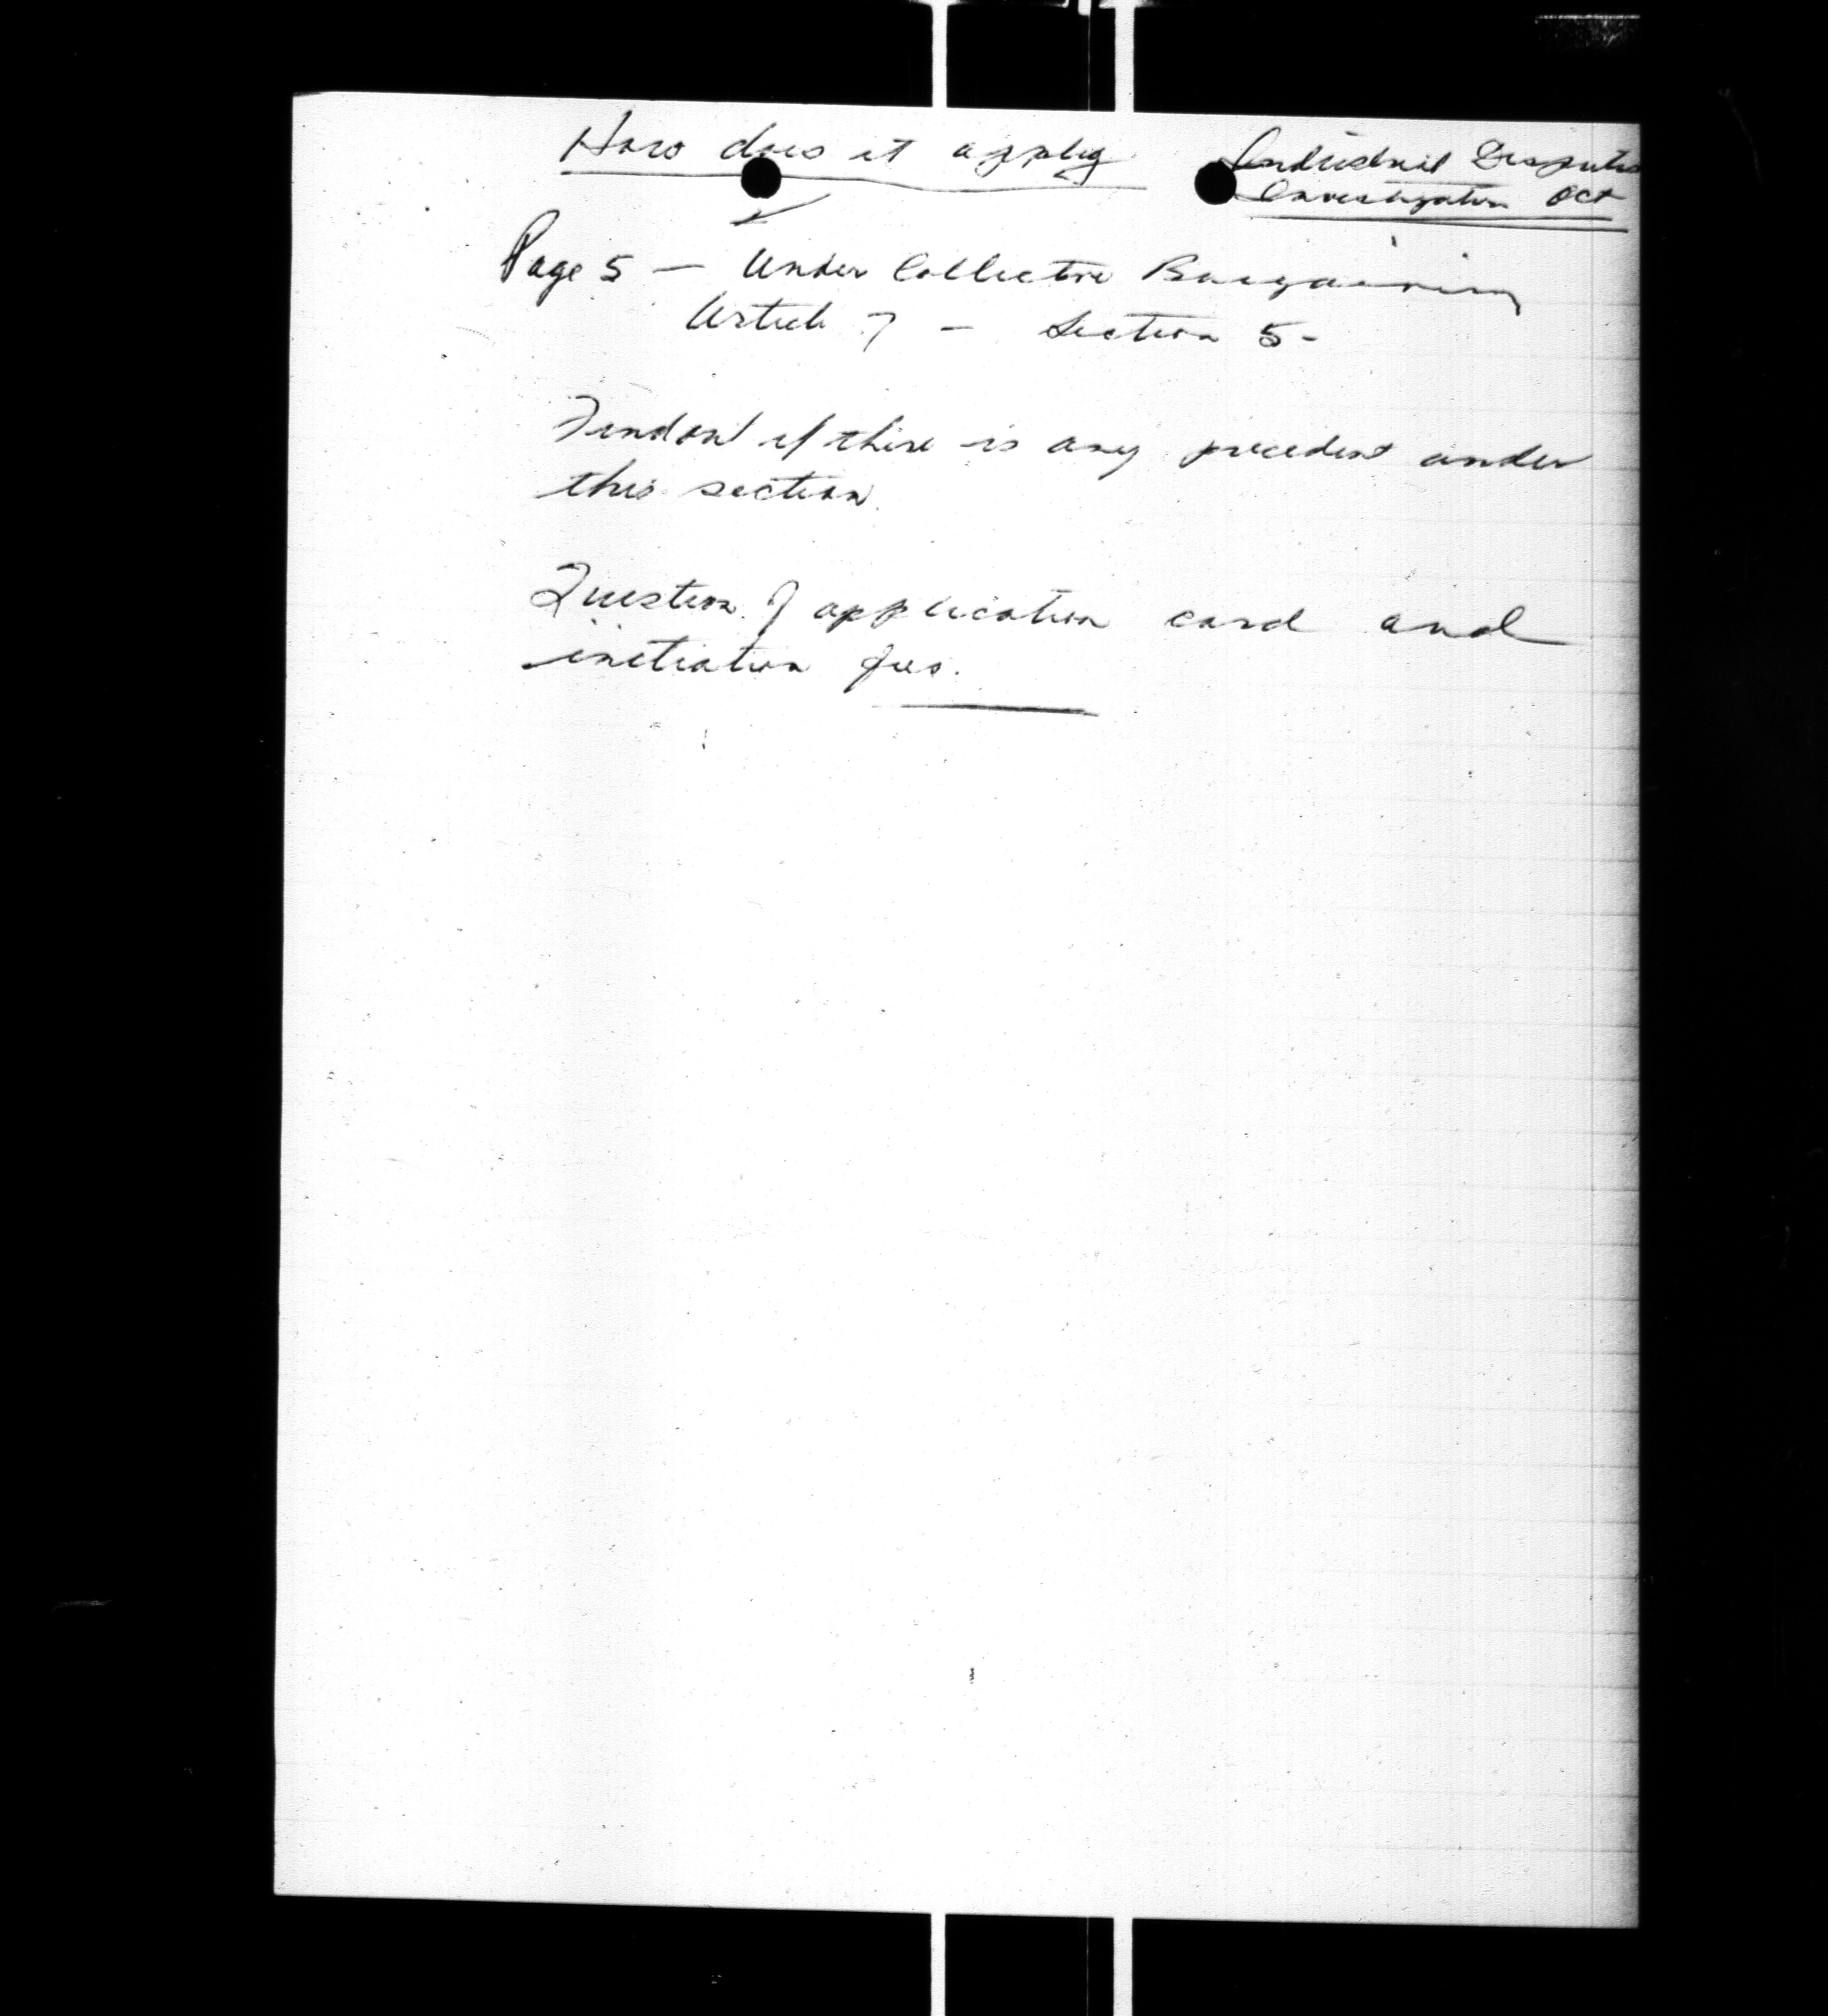 How does it apply
Industrial Disputes
Investigation Act
Page 5 – Under Collective Bargaining
Article 7 – Section 5 -
Find out if there is any precedent under
this section.
Question of application card and
initiation fees.